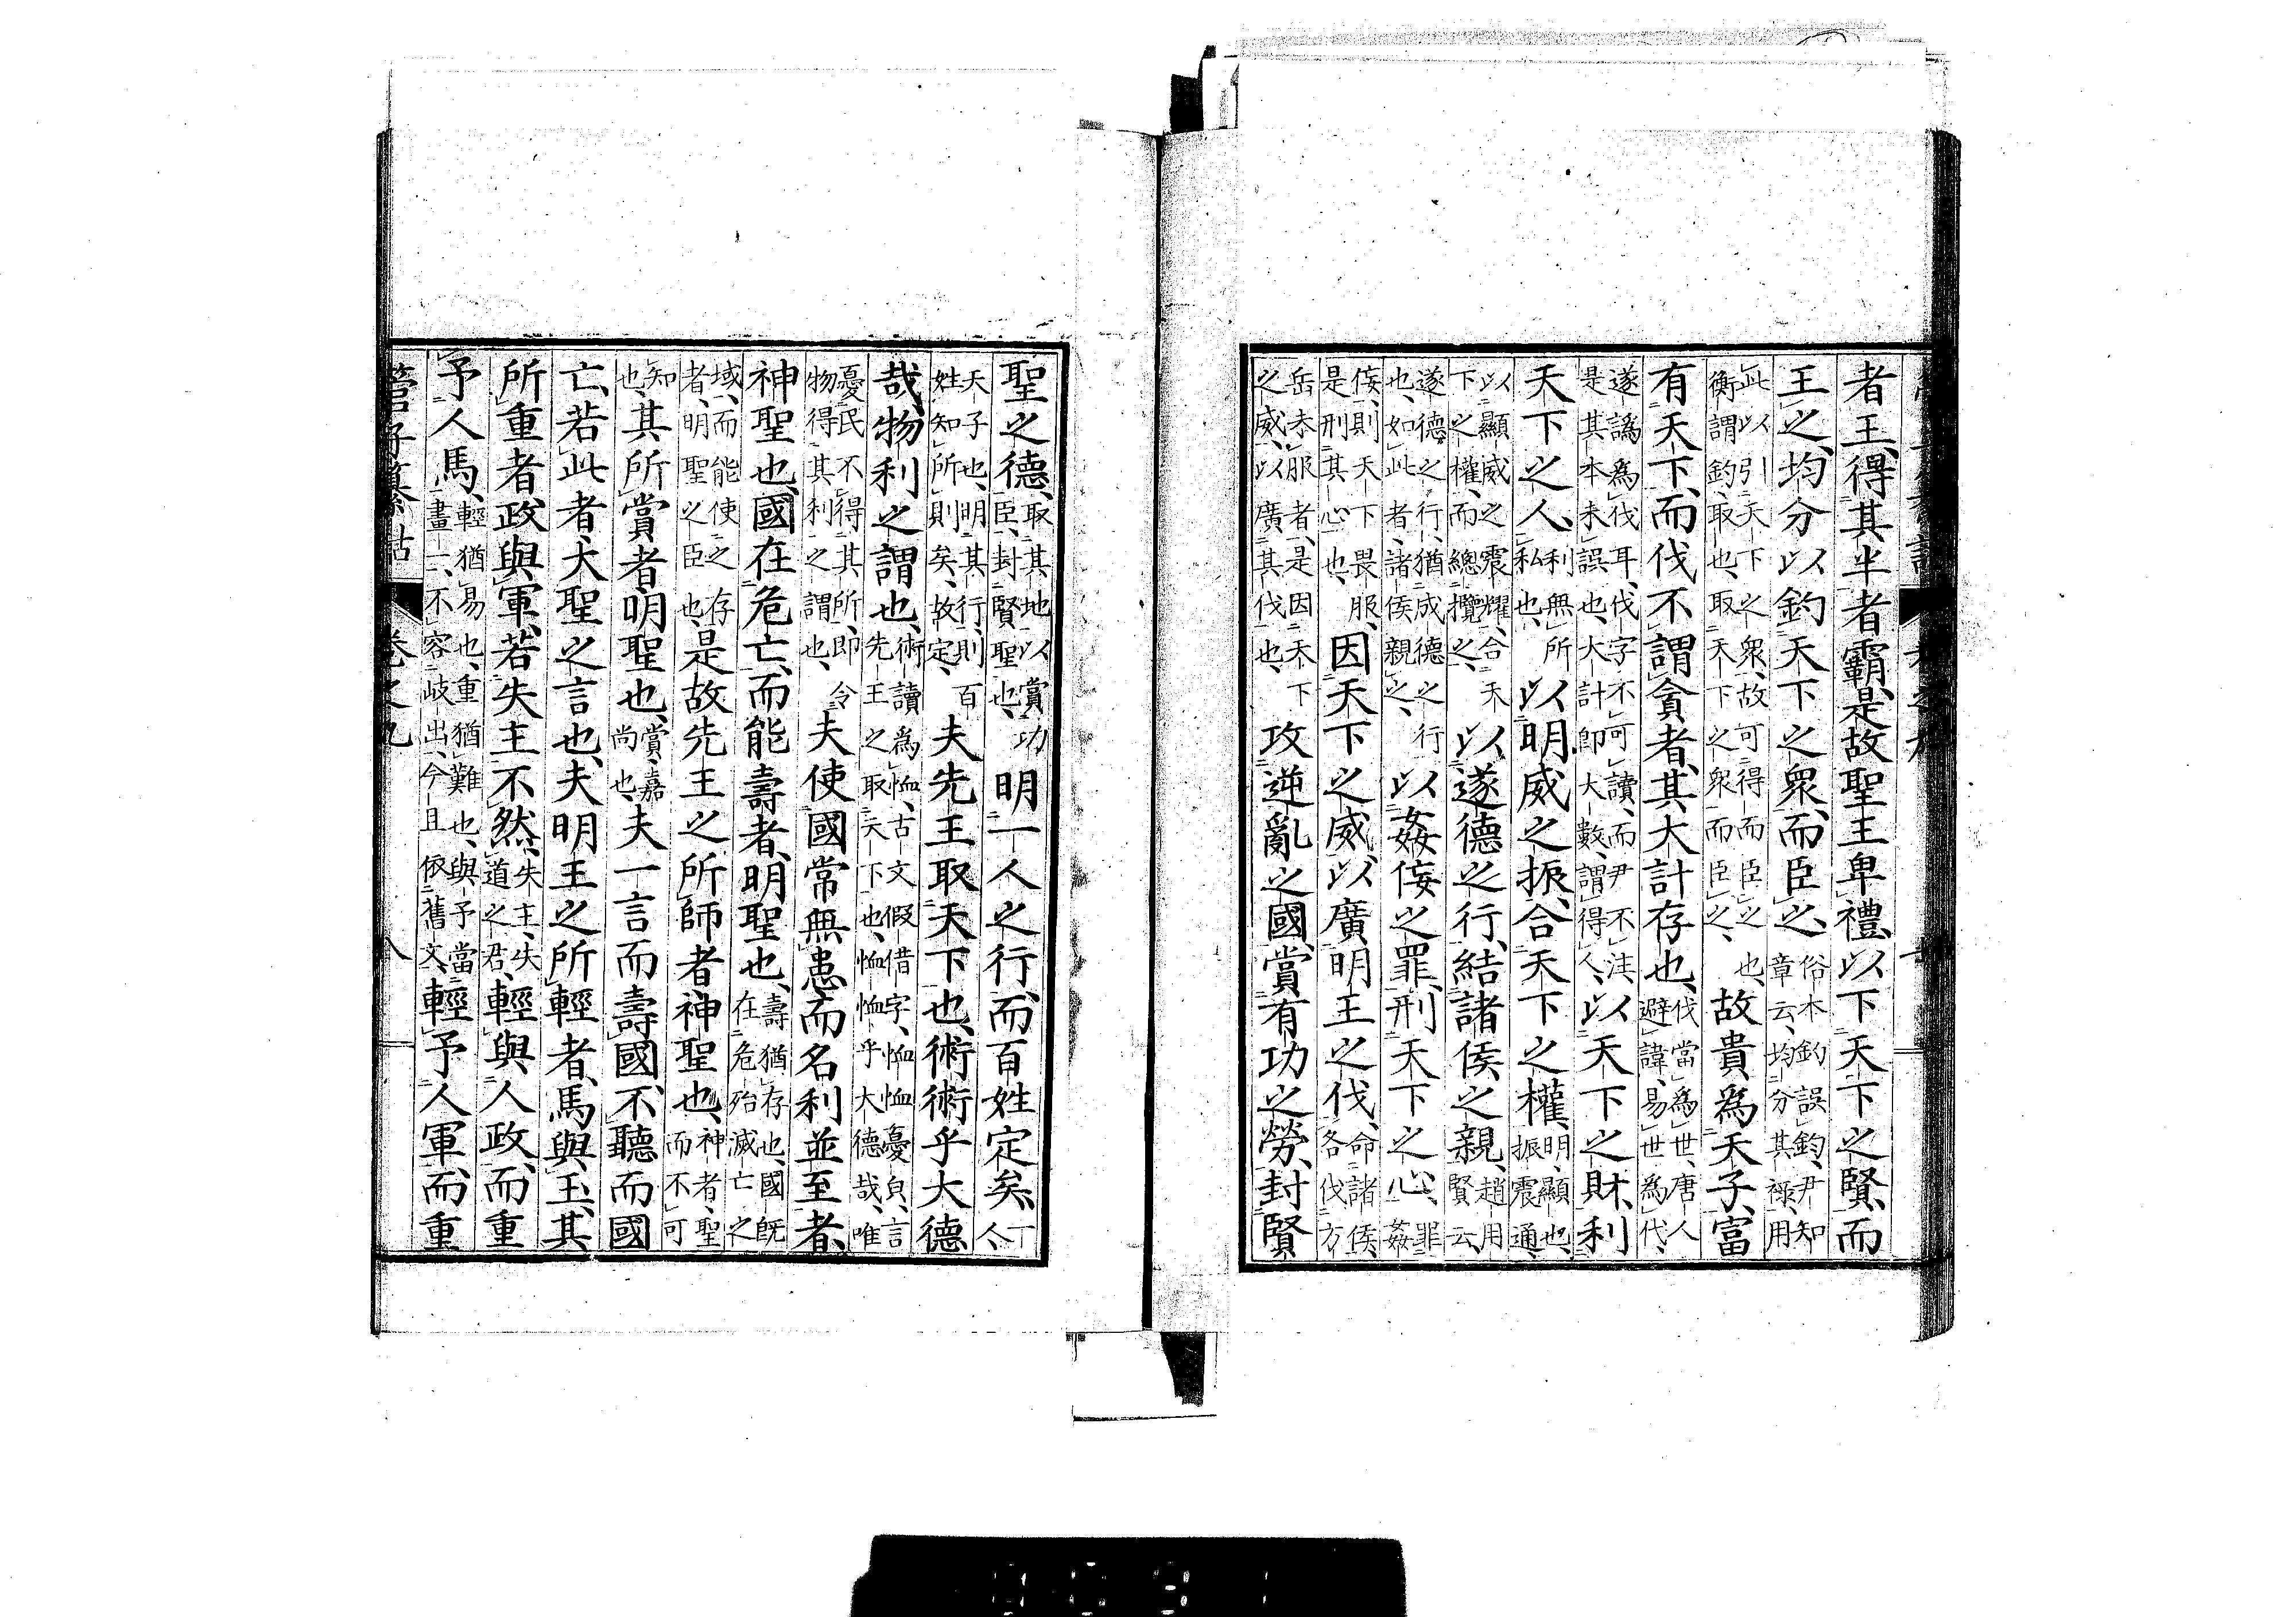 者王、得其半者霸、是故聖王卑禮、以下天下之賢、而
王之、均分以釣天下之眾、而臣之、俗本釣誤鈞、尹知
章云、均分其祿、用
此以引天下之衆、故可得而臣之也、
衡謂釣、取也、取天下之衆而臣之、故貴爲天子、富
有天下、而伐不謂貪者、其大計存也、伐當爲世、唐人
避諱、易世爲代、
遂譌爲伐耳、伐字不可讀、而尹不注、
是其本未誤也、大計卽大數、謂得人、以天下之財、利
天下之人、利無所
私也、以明威之振、合天下之權、明、顯也、
振震通、
以顯威之震耀、合天
下之權、而總攬之、以遂德之行、結諸侯之親、趙用
賢云、
遂德之行、猶成德之行
也、如此者、諸侯親之、以姦佞之罪、刑天下之心、罪
姦
佞、則天下畏服、
是刑其心也、因天下之威、以廣明王之伐、命諸侯、
各伐方
岳未服者、是因天下
之威、以廣其伐也、攻逆亂之國、賞有功之勞、封賢
聖之德、取其地以賞功
臣、封賢聖也、明一人之行、而百姓定矣、一
人、
天子也、明其行、則百
姓知所則矣、故定、夫先王取天下也、術術乎大德
哉、物利之謂也、術讀爲恤、古文假借字、恤恤憂皃、言
先王之取天下也、恤恤乎大德哉、唯
憂民不得其所、卽令
物得其利之謂也、夫使國常無患、而名利並至者、
神聖也、國在危亡、而能壽者、明聖也、壽猶存也、國旣
在危殆滅亡之
域、而能使之存
者、明聖之臣也、是故先王之所師者、神聖也、神者、聖
而不可
知
也、其所賞者、明聖也、賞、嘉
尚也、夫一言而壽國、不聽而國
亡、若此者、大聖之言也、夫明王之所輕者、馬與玉、其
所重者、政與軍、若失主不然、失主、失
道之君、輕與人政、而重
予人馬、輕猶易也、重猶難也、與予當
畫一、不容岐出、今且依舊文、輕予人軍、而重
管子纂詁 卷之九 八